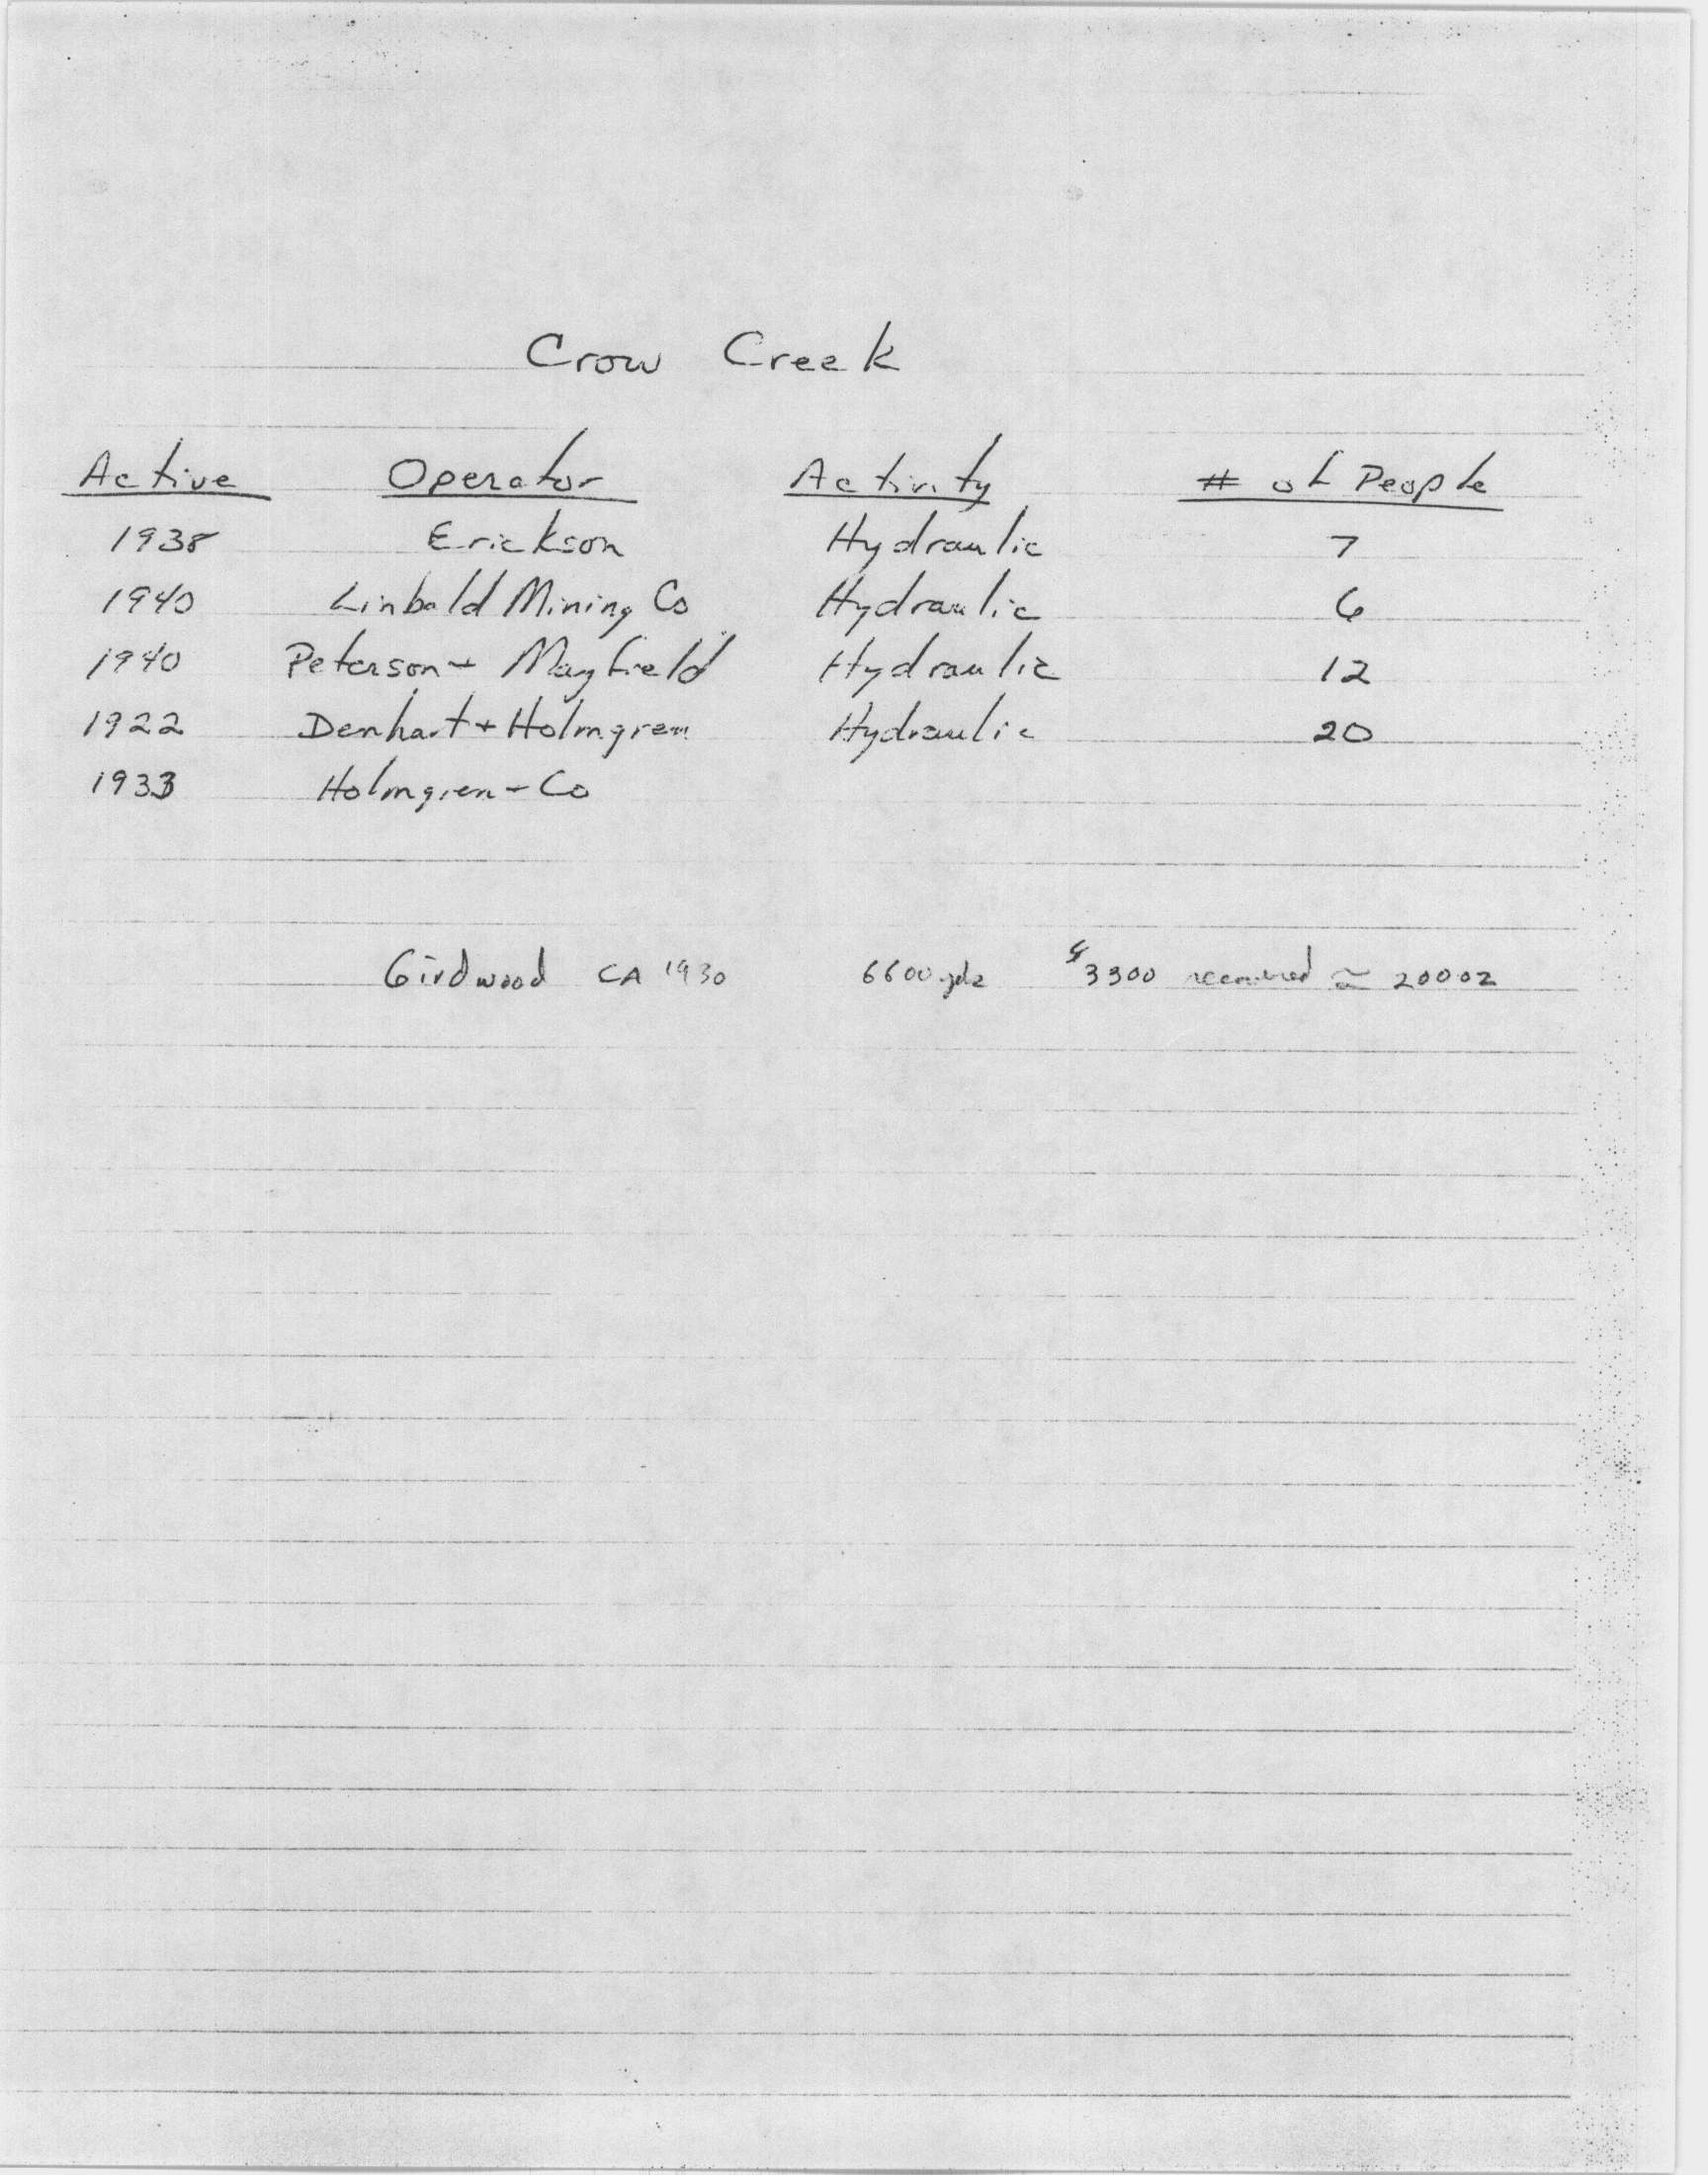 Crow Creek
Active Operator Activity # of People
1938 Erickson Hydraulic 7
1940 Linbold Mining Co Hydraulic 6
1940 Peterson + Mayfield Hydraulic 12
1922 Denhart + Holmgren Hydraulic 20
1933 Holmgren + Co
Girdwood CA 1930 6600 yds $3300 recovered ≈ 200 oz